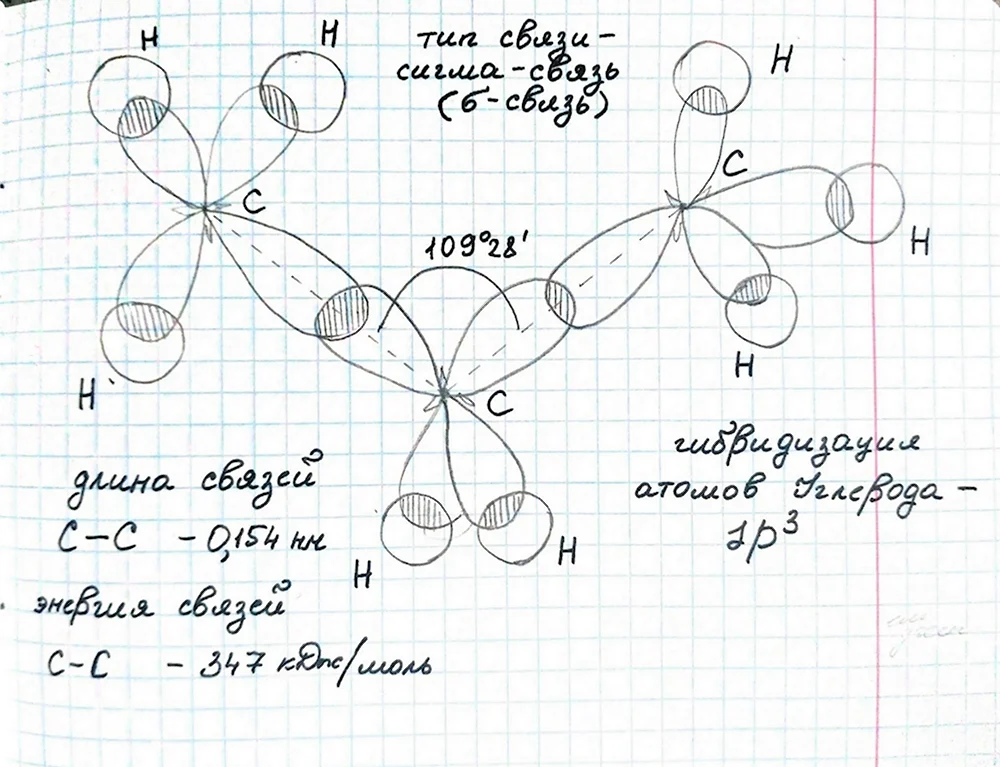 H
H
тип связи -
сигма-связь
(б-связь)
H
C
C
H
109°28'
H
H
C
H
H
гибридизация
атомов Углерода -
sp³
длина связей
C-C - 0,154 нм
энергия связей
C-C - 347 кДж/моль